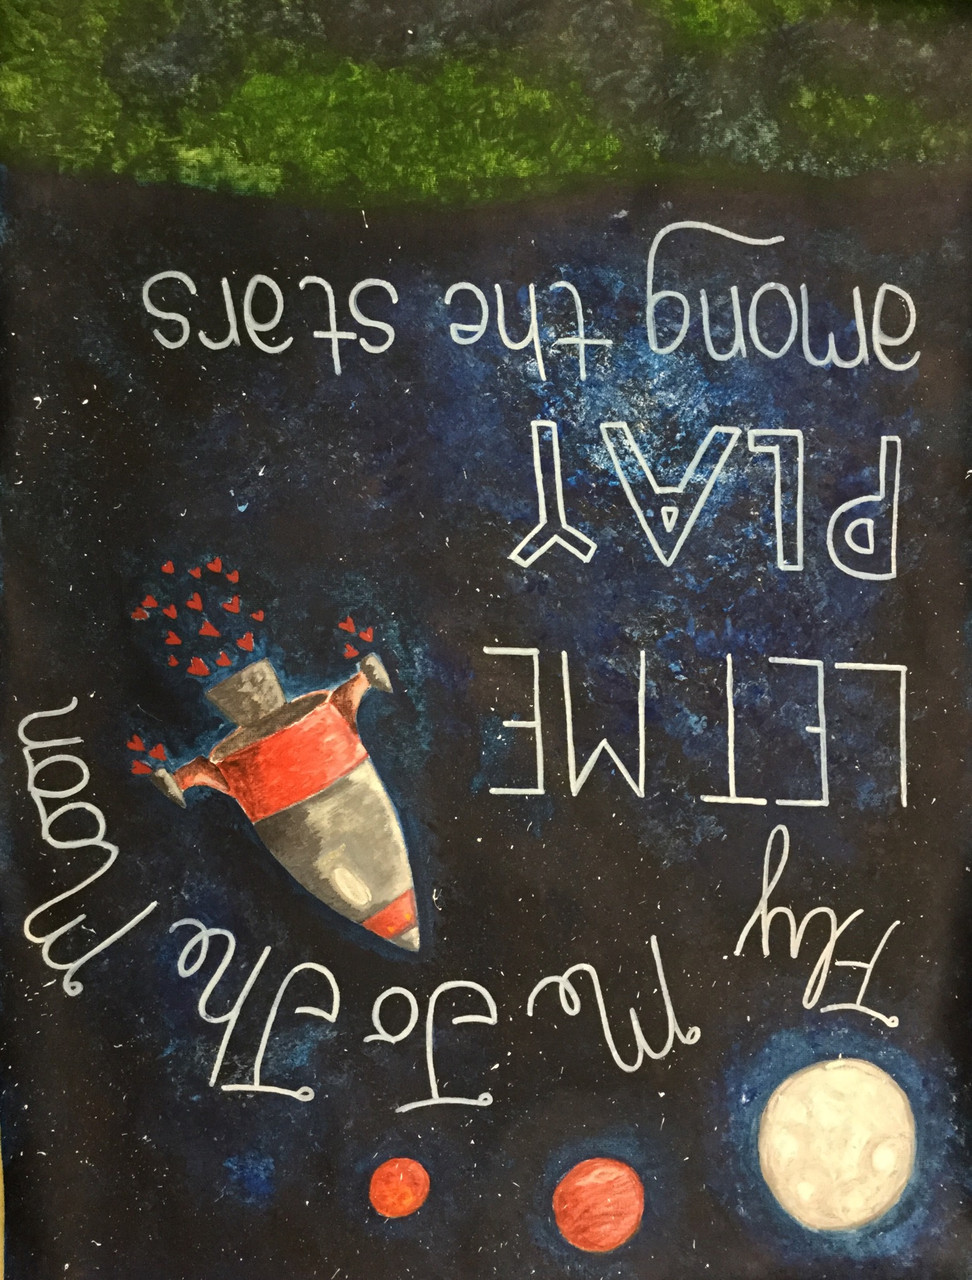 Fly Me To The Moon
LET ME
PLAY
among the stars